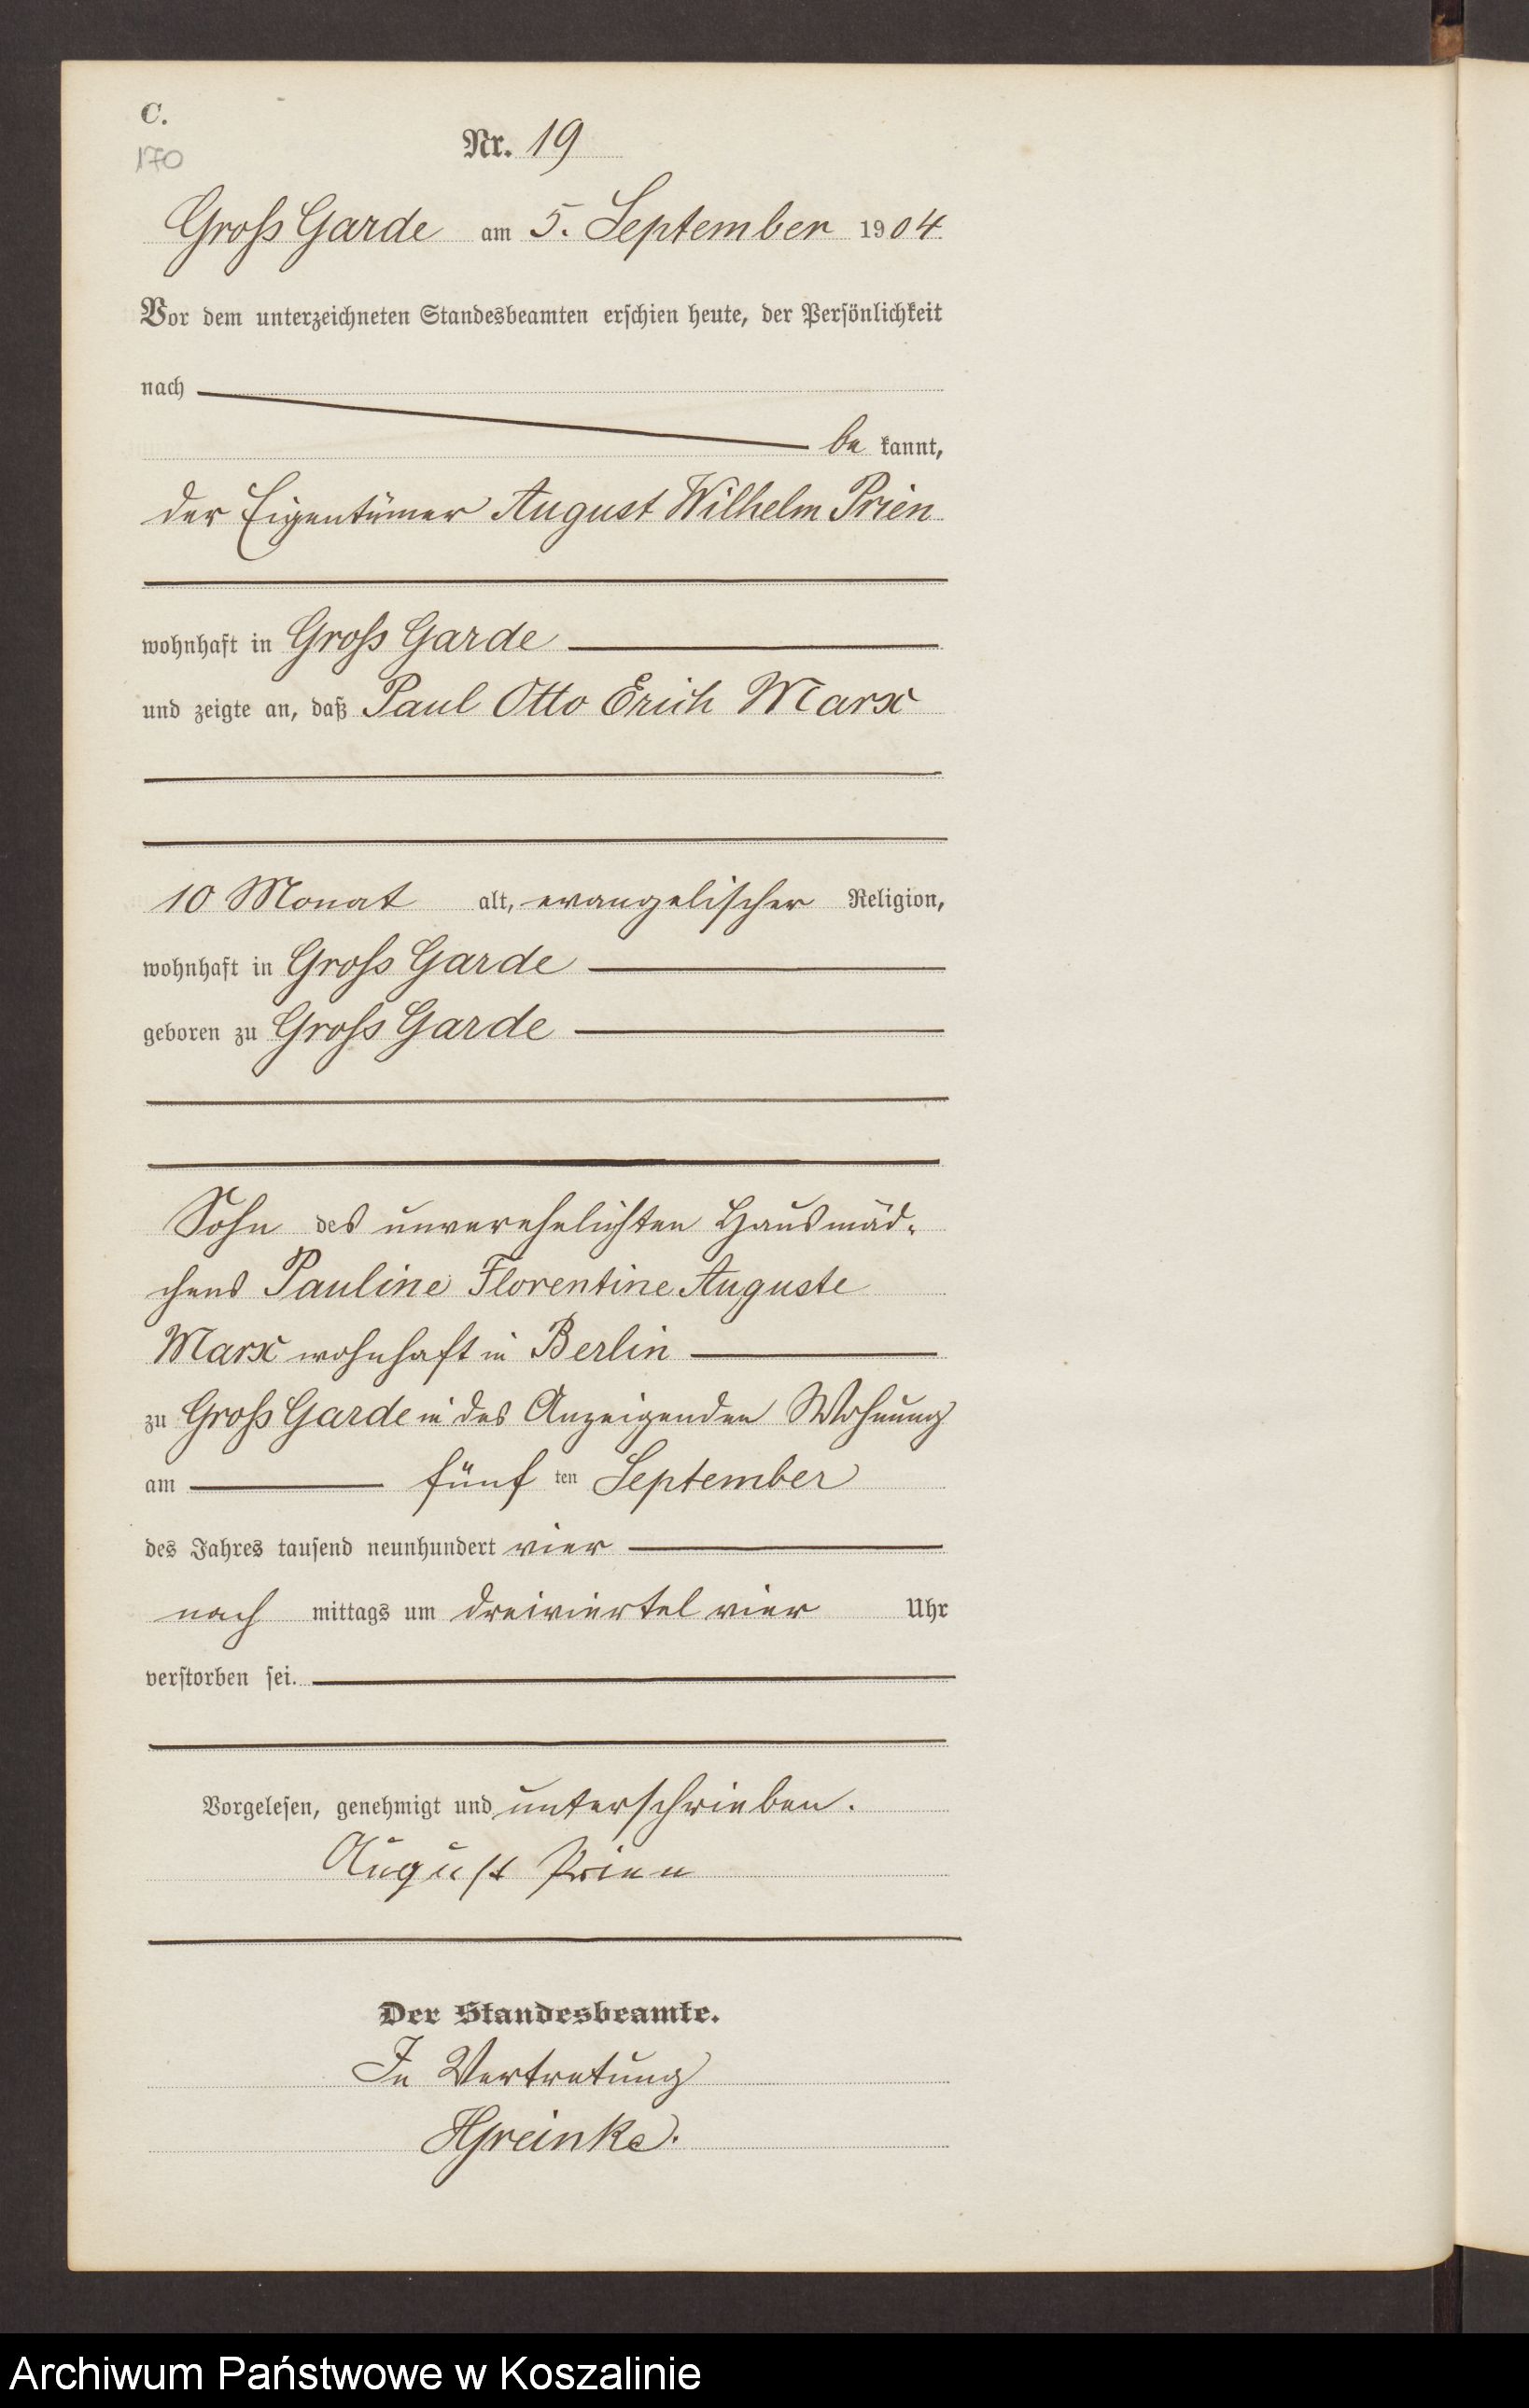 C.
170
Nr. 19
Groß Garde am 5. September 1904
Vor dem unterzeichneten Standesbeamten erschien heute, der Persönlichkeit
nach
be kannt,
der Eigentümer August Wilhelm Prien
wohnhaft in Groß Garde
und zeigte an, daß Paul Otto Erich Marx
10 Monat alt, evangelischer Religion,
wohnhaft in Groß Garde
geboren zu Groß Garde
Sohn des unverehelichten Hausmäd-
chens Pauline Florentine Auguste
Marx wohnhaft in Berlin
zu Groß Garde in des Anzeigenden Wohnung
am fünf ten September
des Jahres tausend neunhundert vier
nach mittags um dreiviertel vier Uhr
verstorben sei.
Vorgelesen, genehmigt und unterschrieben.
August Prien
Der Standesbeamte.
In Vertretung
HGreinke.
Archiwum Państwowe w Koszalinie